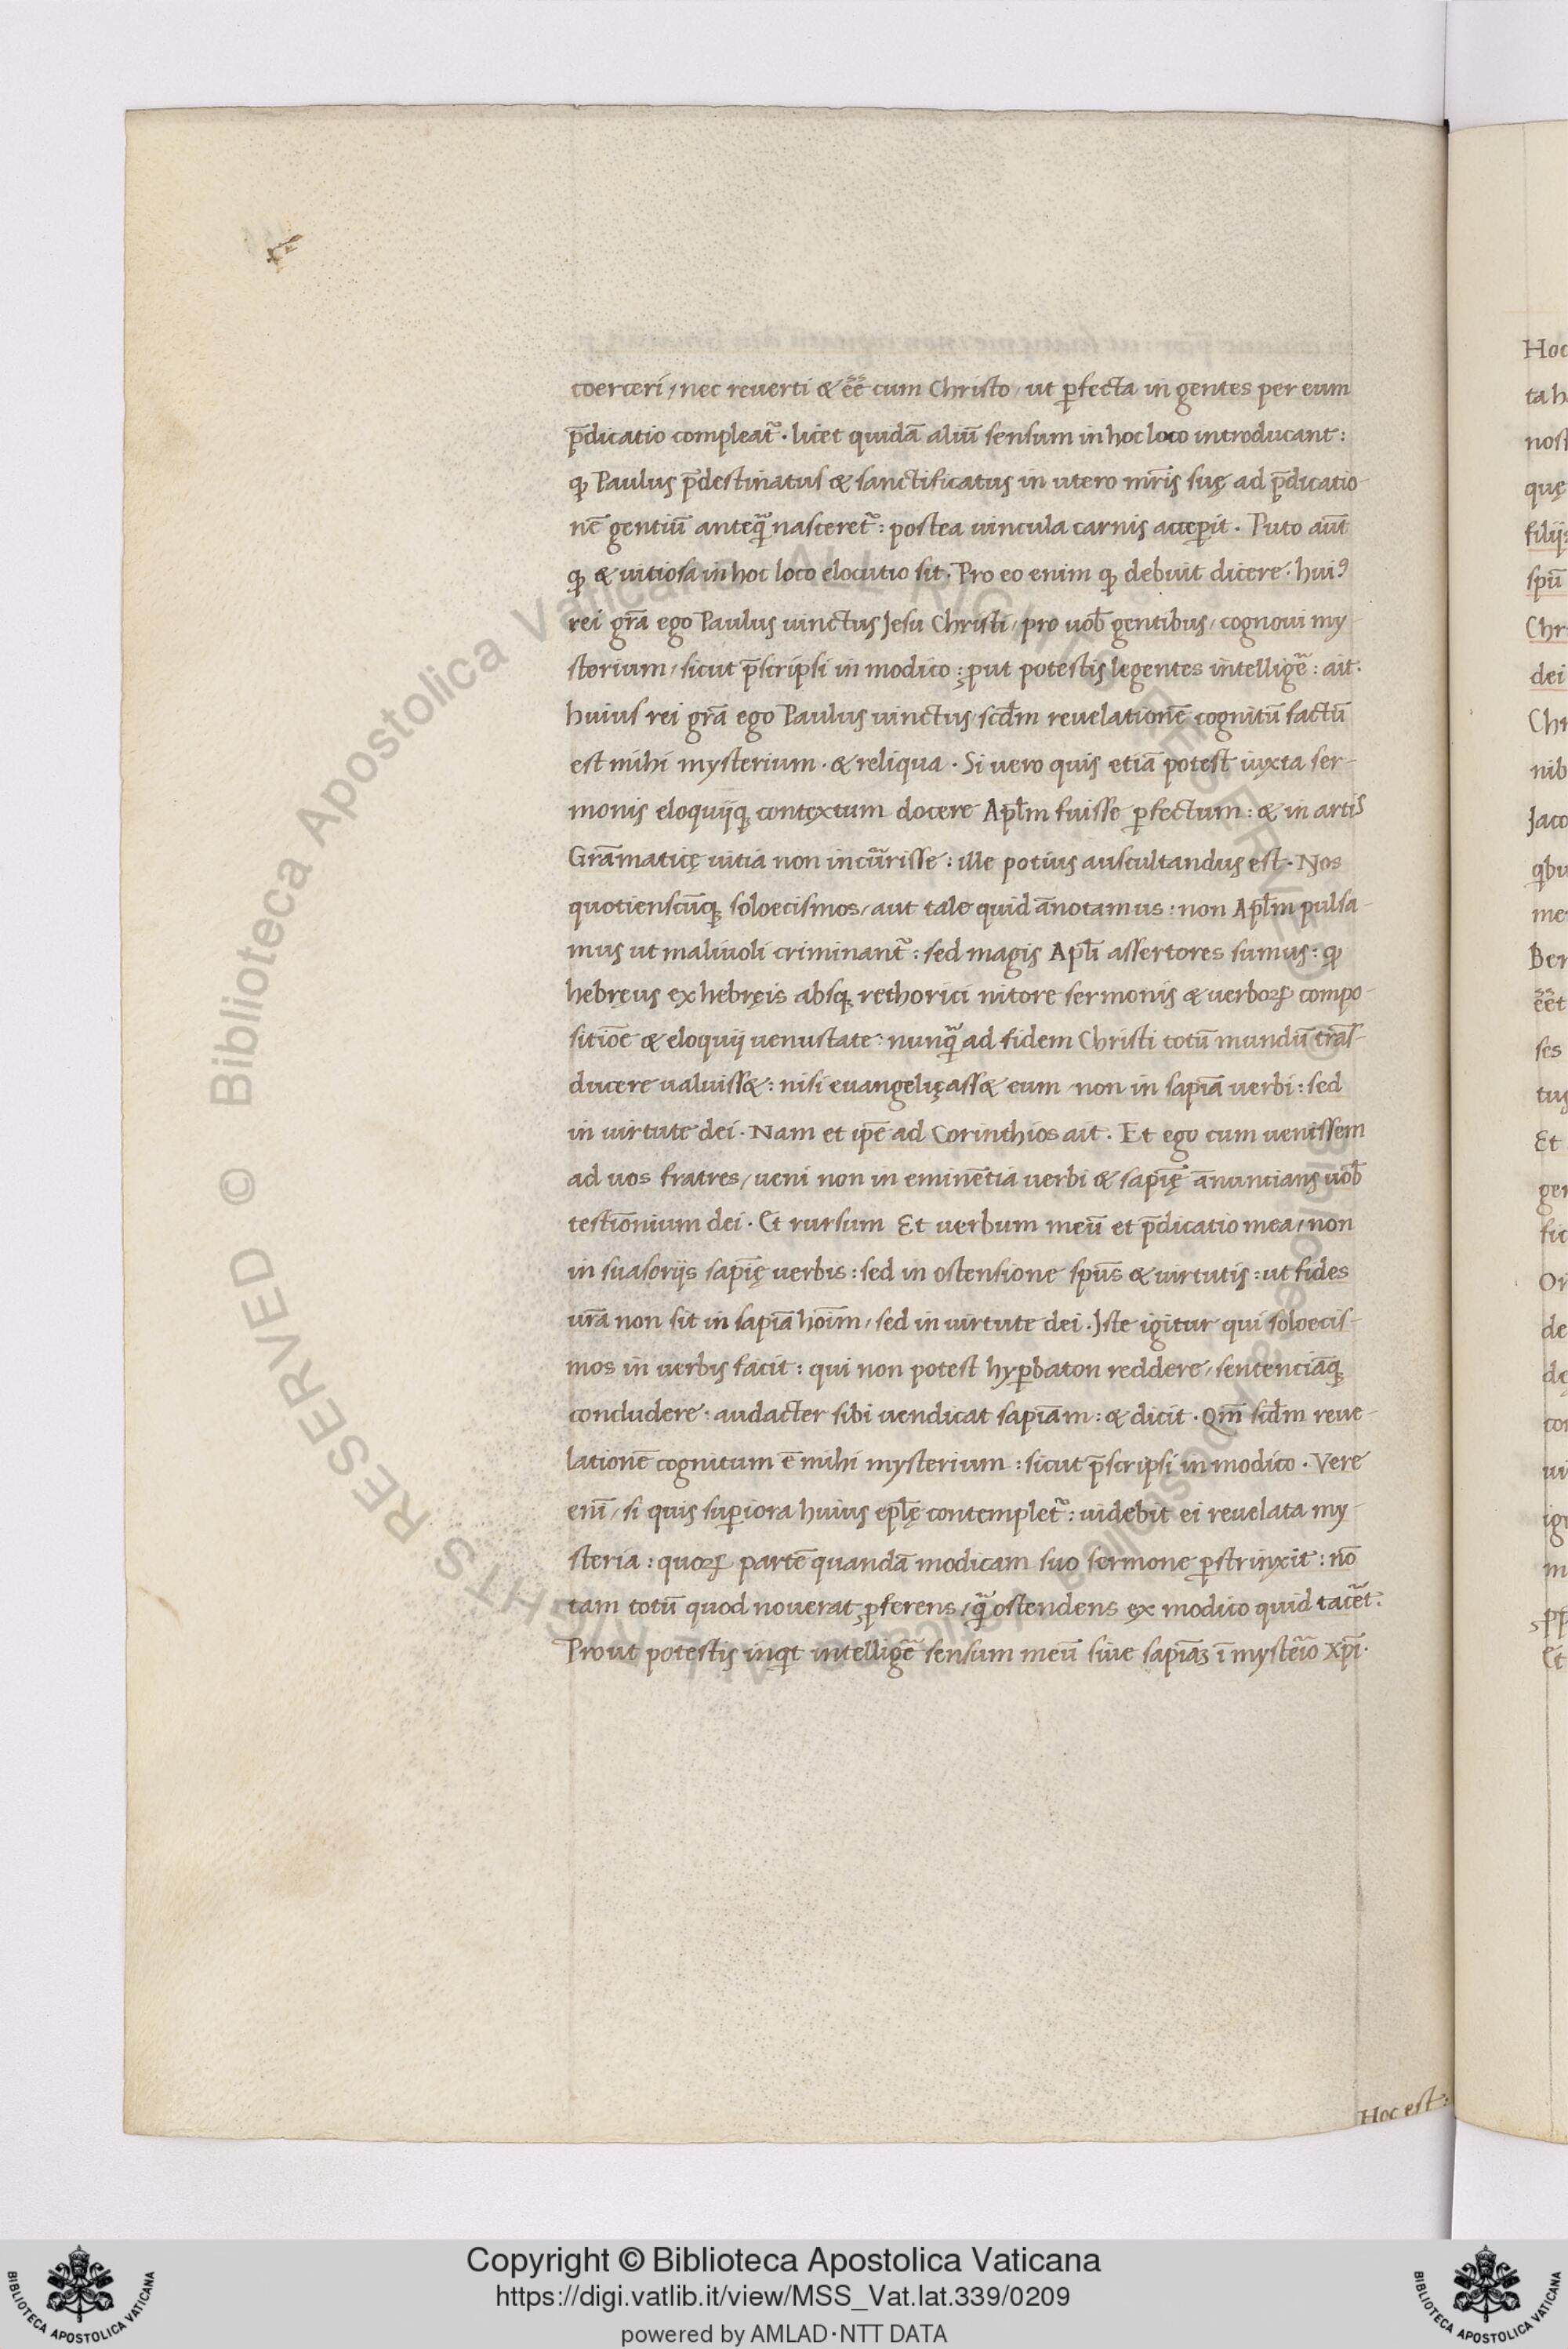 coerceri, nec reuerti & ee͞e cum Christo, ut ꝑfecta in gentes per eum
p̄dicatio compleat᷑. licet quidā aliū sensum in hoc loco introducant:
ꝙ Paulus p̄destinatus & sanctificatus in utero mr̄is suę ad p̄dicatio-
nē gentiū anteq̄ nasceret᷑: postea uincula carnis acceꝑit. Puto aūt
ꝙ & uitiosa in hoc loco elocutio sit. Pro eo enim ꝙ debuit dicere: huiꝰ
rei grā ego Paulus uinctus Jesu Christi, pro uob̄ gentibus, cognoui my-
sterium, sicut p̄scripsi in modico: ꝓut potestis legentes intelligē: ait.
huius rei grā ego Paulus uinctus, scd̄m reuelationē cognitū factū
est mihi mysterium. & reliqua. Si uero quis etiā potest iuxta ser-
monis eloquijq; contextum docere Apl̄m fuisse ꝑfectum: & in artis
Grāmaticę uitia non incūrisse: ille potius auscultandus est. Nos
quotienscūq; soloecismos, aut tale quid ānotamus: non Apl̄m pulsa-
mus ut maliuoli criminant᷑: sed magis Apl̄i assertores sumus: ꝙ
hebręus ex hebręis absq; rethorici nitore sermonis & uerboꝝ compo-
sitiōe & eloquij uenustate: nunq̄ ad fidem Christi totū mundū trās-
ducere ualuiss&: nisi euangelięass& eum, non in sapiā uerbi: sed
in uirtute dei. Nam et ip̄e ad Corinthios ait. Et ego cum uenissem
ad uos fratres, ueni non in eminētia uerbi & sapię̄ ānuncians uob̄
testiōnium dei. Et rursum Et uerbum meū et p̄dicatio mea, non
in suasorijs sapię̄ uerbis: sed in ostensione spūs & uirtutis: ut fides
ur̄a non sit in sapiā hoīm, sed in uirtute dei. Iste igitur qui soloecis-
mos in uerbis facit: qui non potest hyꝑbaton reddere, sentenciāq;
concludere: audacter sibi uendicat sapiām: & dicit. Qm̄ scd̄m reue-
lationē cognitum ē mihi mysterium: sicut p̄scripsi in modico. Vere
enī, si quis suꝑiora huius epl̄ę contemplet᷑: uidebit ei reuelata my-
steria: quoꝝ partē quandā modicam suo sermone ꝑstrinxit: nō
tam totū quod nouerat ꝓferens, q̄ ostendens ex modico quid tacēt:
Prout potestis inqͥt intelligē sensum meū siue sapiāꝫ ī mystēio xp̄i.
Hoc est:
Hoc
ta h
nost
quę
filij:
spū
Chr
dei
Chr
nib
Jaco
qͥbu
me
Ber
ēēt
ses
tus
Et
ger
fic
dei
de
dę
cor
ui
igi
m
ꝓp
Et
© Biblioteca Apostolica Vaticana ALL RIGHTS RESERVED
© Biblioteca Apostolica Vaticana ALL RIGHTS RESERVED
Copyright © Biblioteca Apostolica Vaticana
https://digi.vatlib.it/view/MSS_Vat.lat.339/0209
powered by AMLAD·NTT DATA
BIBLIOTECA APOSTOLICA VATICANA
BIBLIOTECA APOSTOLICA VATICANA